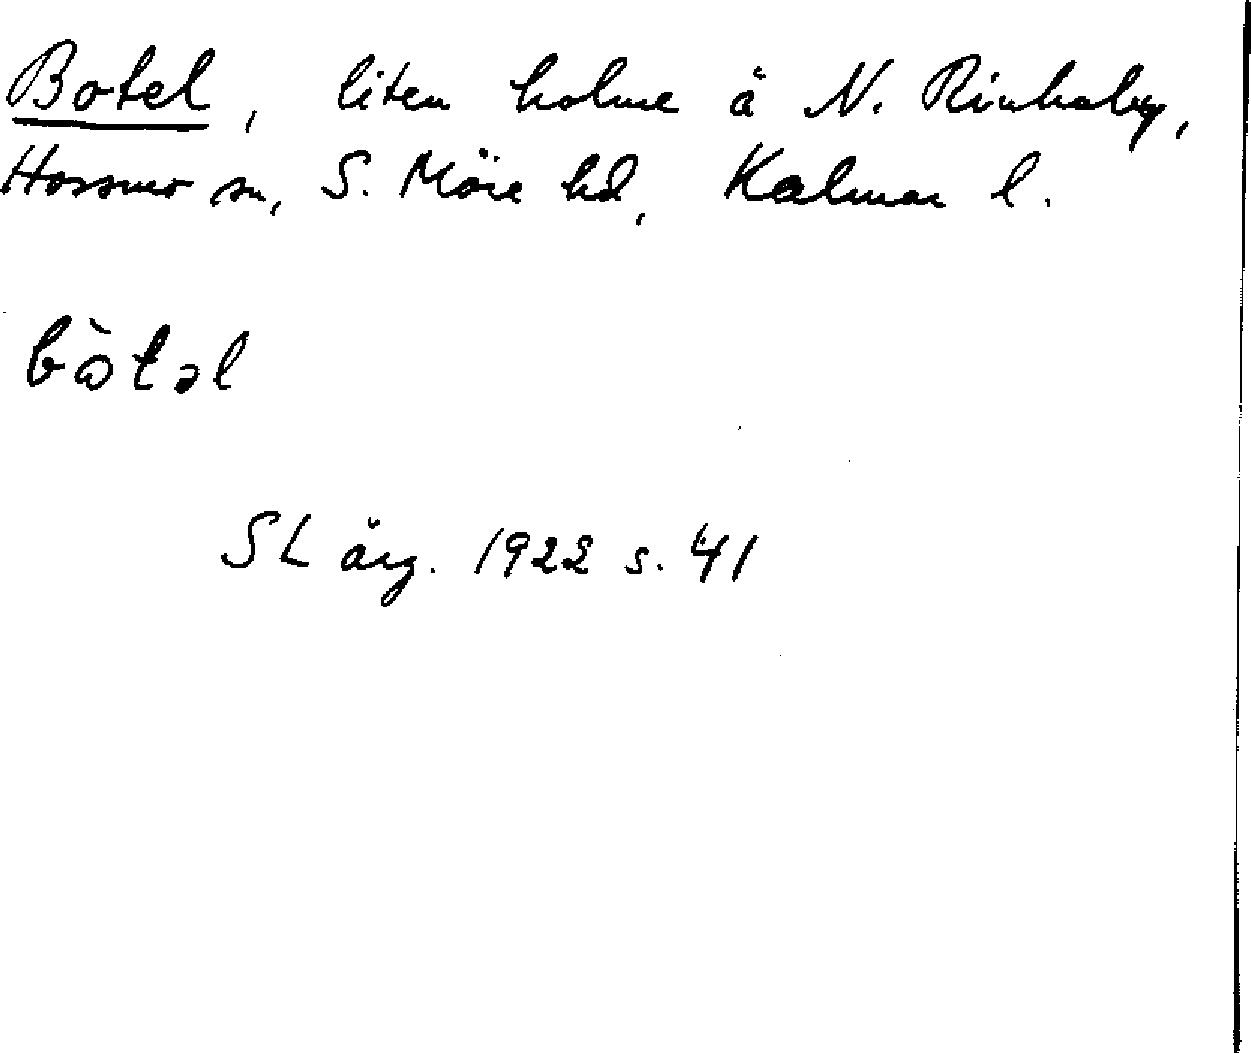 Botel, liten holme å N. Rinkaby,
Hossmo sn, S. Möre hd, Kalmar l.
bὼtəl
SL årg. 1922 s. 41